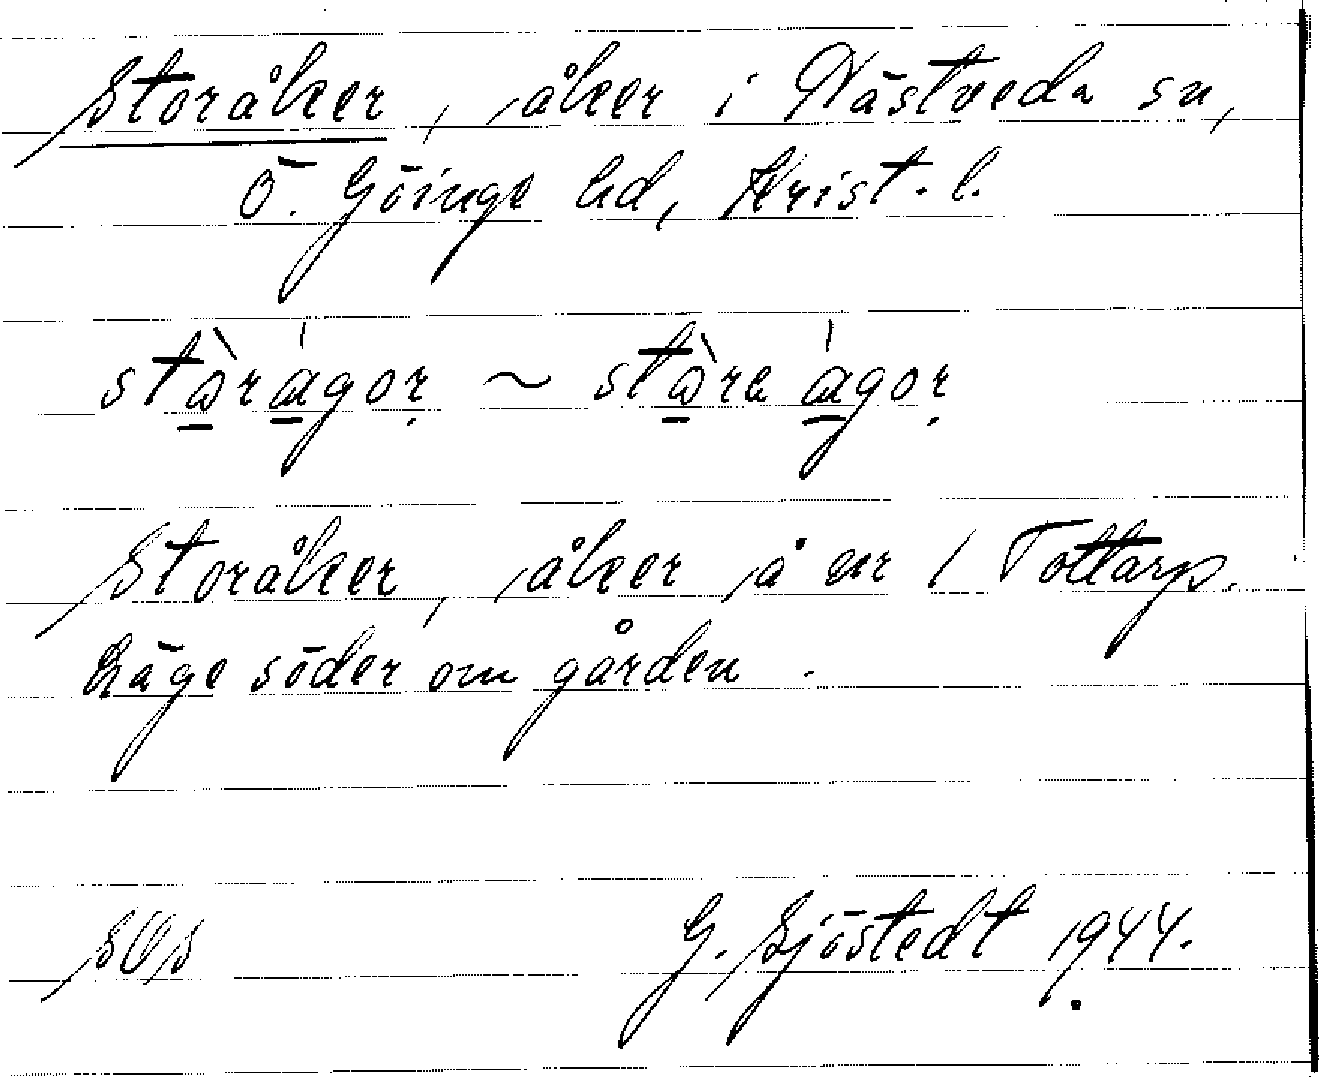 Storåker, åker i Nästveda sn,
Ö. Göinge hd, Krist. l.
stòrágor̤ ~ stòre ágor̤
Storåker, åker å nr 1 Tottarp.
Läge söder om gården.
G. Sjöstedt 1944.